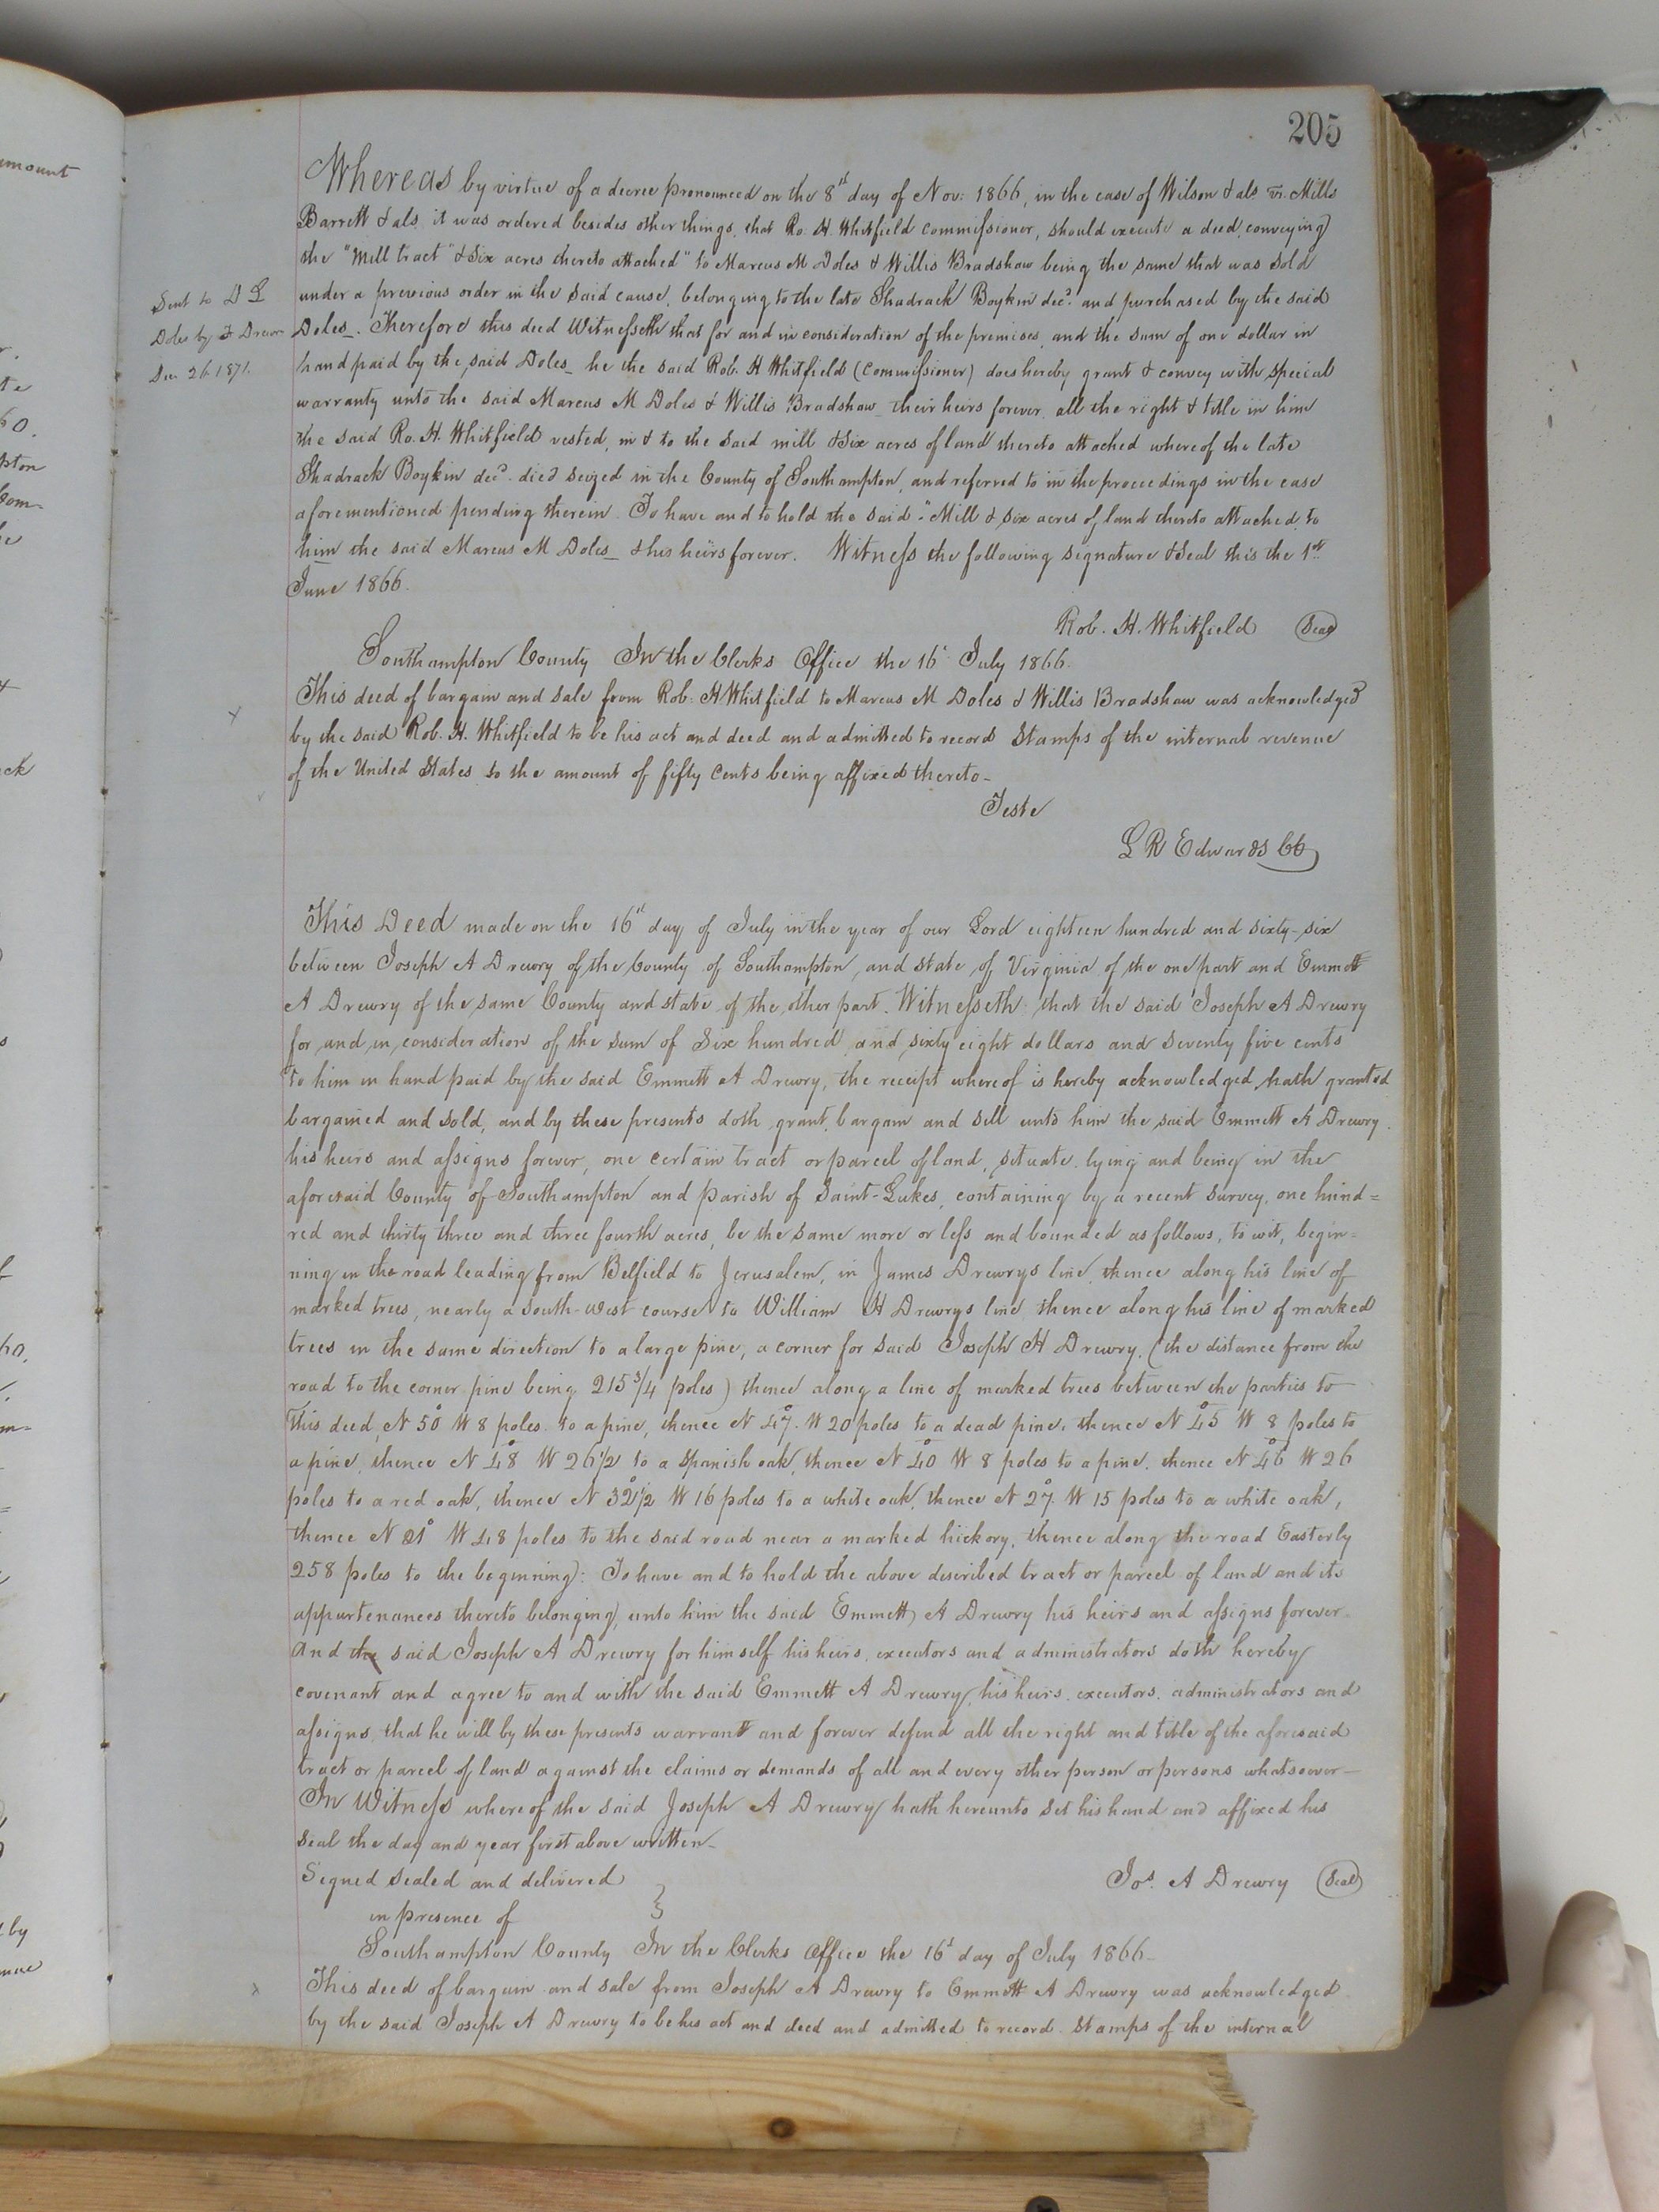 205
Whereas by virtue of a decree pronounced on the 8th day of Nov: 1866, in the case of Wilson & als vs. Mills
Barrett & als it was ordered besides other things, that Ro. H. Whitfield Commissioner, should execute a deed, conveying
the "Mill tract" & Six acres thereto attached" to Marcus M Doles & Willis Bradshaw being the same that was sold
under a previous order in the said cause, belonging to the late Shadrack Boykin decd. and purchased by the said
Doles_. Therefore this deed Witnesseth that for and in consideration of the premises, and the sum of one dollar in
hand paid by the said Doles_ he the said Rob. H Whitfield (Commissioner) does hereby grant & convey with special
warranty unto the said Marcus M Doles & Willis Bradshaw their heirs forever, all the right & title in him
the said Ro. H. Whitfield vested, in & to the said mill & Six acres of land thereto attached whereof the late
Shadrack Boykin decd. died seized in the County of Southampton, and referred to in the proceedings in the case
aforementioned pending therein. To have and to hold the said "Mill & six acres of land thereto attached, to
him the said Marcus M Doles_ & his heirs forever. Witness the following signature & Seal this the 1st
June 1866.
Sent to D L
Doles by
Dec 26 1871.
Rob. H. Whitfield Seal
Southampton County In the Clerks Office the 16 July 1866.
This deed of bargain and sale from Rob. H Whitfield to Marcus M Doles & Willis Bradshaw was acknowledged
by the said Rob. H. Whitfield to be his act and deed and admitted to record Stamps of the internal revenue
of the United States to the amount of fifty Cents being affixed thereto-
Teste
L R Edwards CC
This Deed made on the 16th day of July in the year of our Lord eighteen hundred and sixty-six
between Joseph A Drewry of the County of Southampton, and state of Virginia of the one part and Emmett
A Drewry of the same County and state of the other part. Witnesseth: that the said Joseph A Drewry
for and in consideration of the sum of Six hundred and sixty eight dollars and seventy five cents
to him in hand paid by the said Emmett A Drewry, the receipt whereof is hereby acknowledged, hath granted
bargained and sold, and by these presents doth grant, bargain and sell unto him the said Emmett A Drewry.
his heirs and assigns forever, one certain tract or parcel of land, situate, lying and being in the
aforesaid County of Southampton and parish of Saint-Lukes, containing by a recent survey, one hund=
red and thirty three and three fourth acres, be the same more or less and bounded as follows, to wit, begin=
ning in the road leading from Belfield to Jerusalem, in James Drewrys line, thence along his line of
marked trees, nearly a South-west course to William H Drewrys line thence along his line of marked
trees in the same direction to a large pine, a corner for said Joseph H Drewry, (the distance from the
road to the corner pine being 215 3/4 poles) thence along a line of marked trees between the parties to
this deed, N 50° W 8 poles to a pine, thence N 47° W 20 poles to a dead pine, thence N 45° W 8 poles to
a pine, thence N 48° W 26 1/2 to a Spanish oak, thence N 40° W 8 poles to a pine, thence N 46° W 26
poles to a red oak, thence N 32° 1/2 W 16 poles to a white oak, thence N 27° W 15 poles to a white oak,
thence N 21° W 48 poles to the said road near a marked hickory, thence along the road Easterly
258 poles to the beginning): To have and to hold the above described tract or parcel of land and its
appurtenances thereto belonging, unto him the said Emmett A Drewry his heirs and assigns forever.
And the said Joseph A Drewry for himself his heirs, executors and administrators doth hereby
covenant and agree to and with the said Emmett A Drewry, his heirs, executors, administrators and
assigns, that he will by these presents warrant and forever defend all the right and title of the aforesaid
tract or parcel of land against the claims or demands of all and every other person or persons whatsoever-
In Witness whereof the said Joseph A Drewry hath hereunto set his hand and affixed his
seal the day and year first above written-
Signed sealed and delivered
in presence of
Jos. A Drewry Seal
Southampton County In the Clerks Office the 16th day of July 1866-
This deed of bargain and sale from Joseph A Drewry to Emmett A Drewry was acknowledged
by the said Joseph A Drewry to be his act and deed and admitted to record. Stamps of the internal